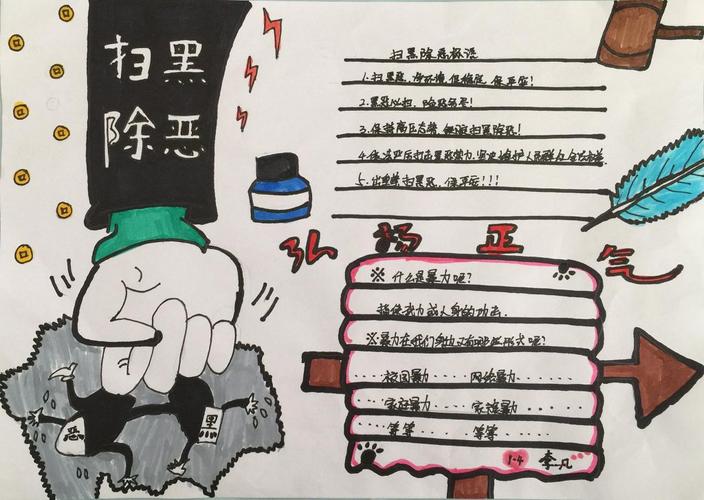 扫黑
除恶
扫黑除恶标语
1.扫黑恶,净环境,促稳定,保平安!
2.黑恶必扫,除恶务尽!
3.保持高压态势,扫黑除恶!
4.依法严厉打击黑恶势力,坚决维护人民群众
5.出重拳,扫黑恶,保平安!!!
弘扬正气
※什么是暴力呢?
指使武力或人身的功击.
※暴力在我们身边又有哪些形式呢?
校园暴力......网络暴力......
家庭暴力......暴力......
等等......等等......
1-4 李一凡
恶
黑